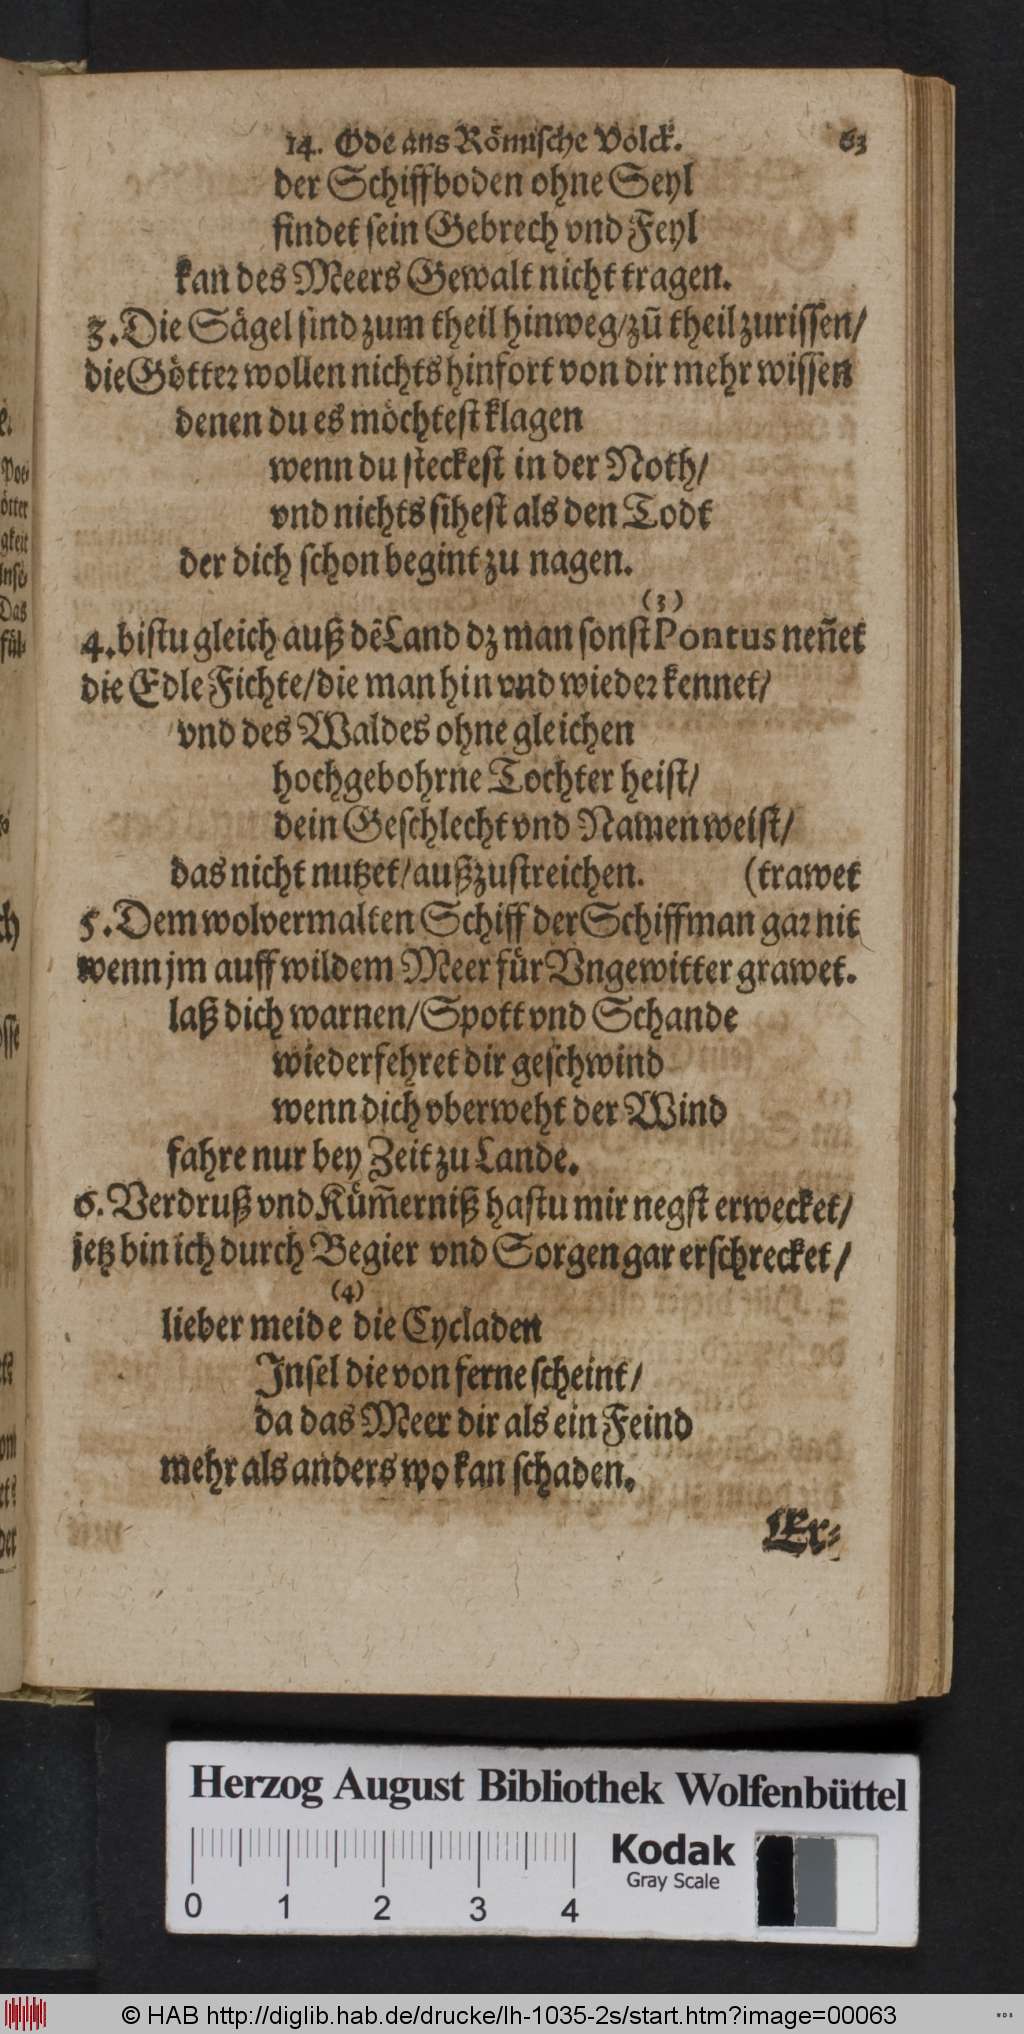 14. Ode ans Römische Volck. 63
der Schiffboden ohne Seyl
findet sein Gebrech vnd Feyl
kan des Meers Gewalt nicht tragen.
3. Die Sägel sind zum theil hinweg/zū theil zurissen/
die Götter wollen nichts hinfort von dir mehr wissen
denen du es möchtest klagen
wenn du steckest in der Noth/
vnd nichts sihest als den Todt
der dich schon begint zu nagen.
(3)
4. bistu gleich auß dē Land dz man sonst Pontus neñet
die Edle Fichte/die man hin vnd wieder kennet/
vnd des Waldes ohne gleichen
hochgebohrne Tochter heist/
dein Geschlecht vnd Namen weist/
das nicht nutzet/außzustreichen. (trawet
5. Dem wolvermalten Schiff der Schiffman gar nit
wenn jm auff wildem Meer für Vngewitter grawet.
laß dich warnen/Spott vnd Schande
wiederfehret dir geschwind
wenn dich vberweht der Wind
fahre nur bey Zeit zu Lande.
6. Verdruß vnd Küm̄erniß hastu mir negst erwecket/
jetz bin ich durch Begier vnd Sorgen gar erschrecket/
(4)
lieber meide die Cycladen
Insel die von ferne scheint/
da das Meer dir als ein Feind
mehr als anders wo kan schaden.
Er-
Herzog August Bibliothek Wolfenbüttel
Kodak
Gray Scale
0 1 2 3 4
© HAB http://diglib.hab.de/drucke/lh-1035-2s/start.htm?image=00063